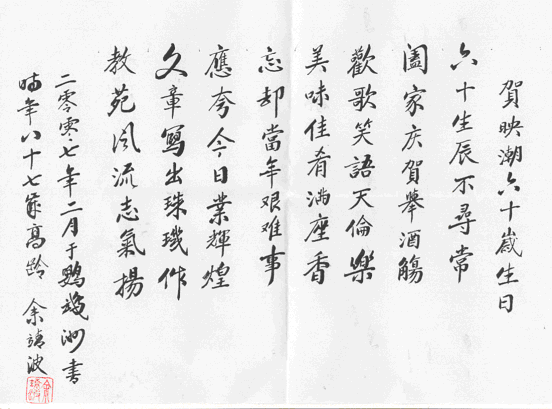 賀映潮六十歲生日
六十生辰不尋常
闔家庆賀舉酒觴
歡歌笑語天倫樂
美味佳肴滿座香
忘却當年艰难事
應夸今日業輝煌
文章寫出珠璣作
教苑风流志氣揚
二零零七年二月于鹦鵡洲書
时年八十七歲高龄 余靖波